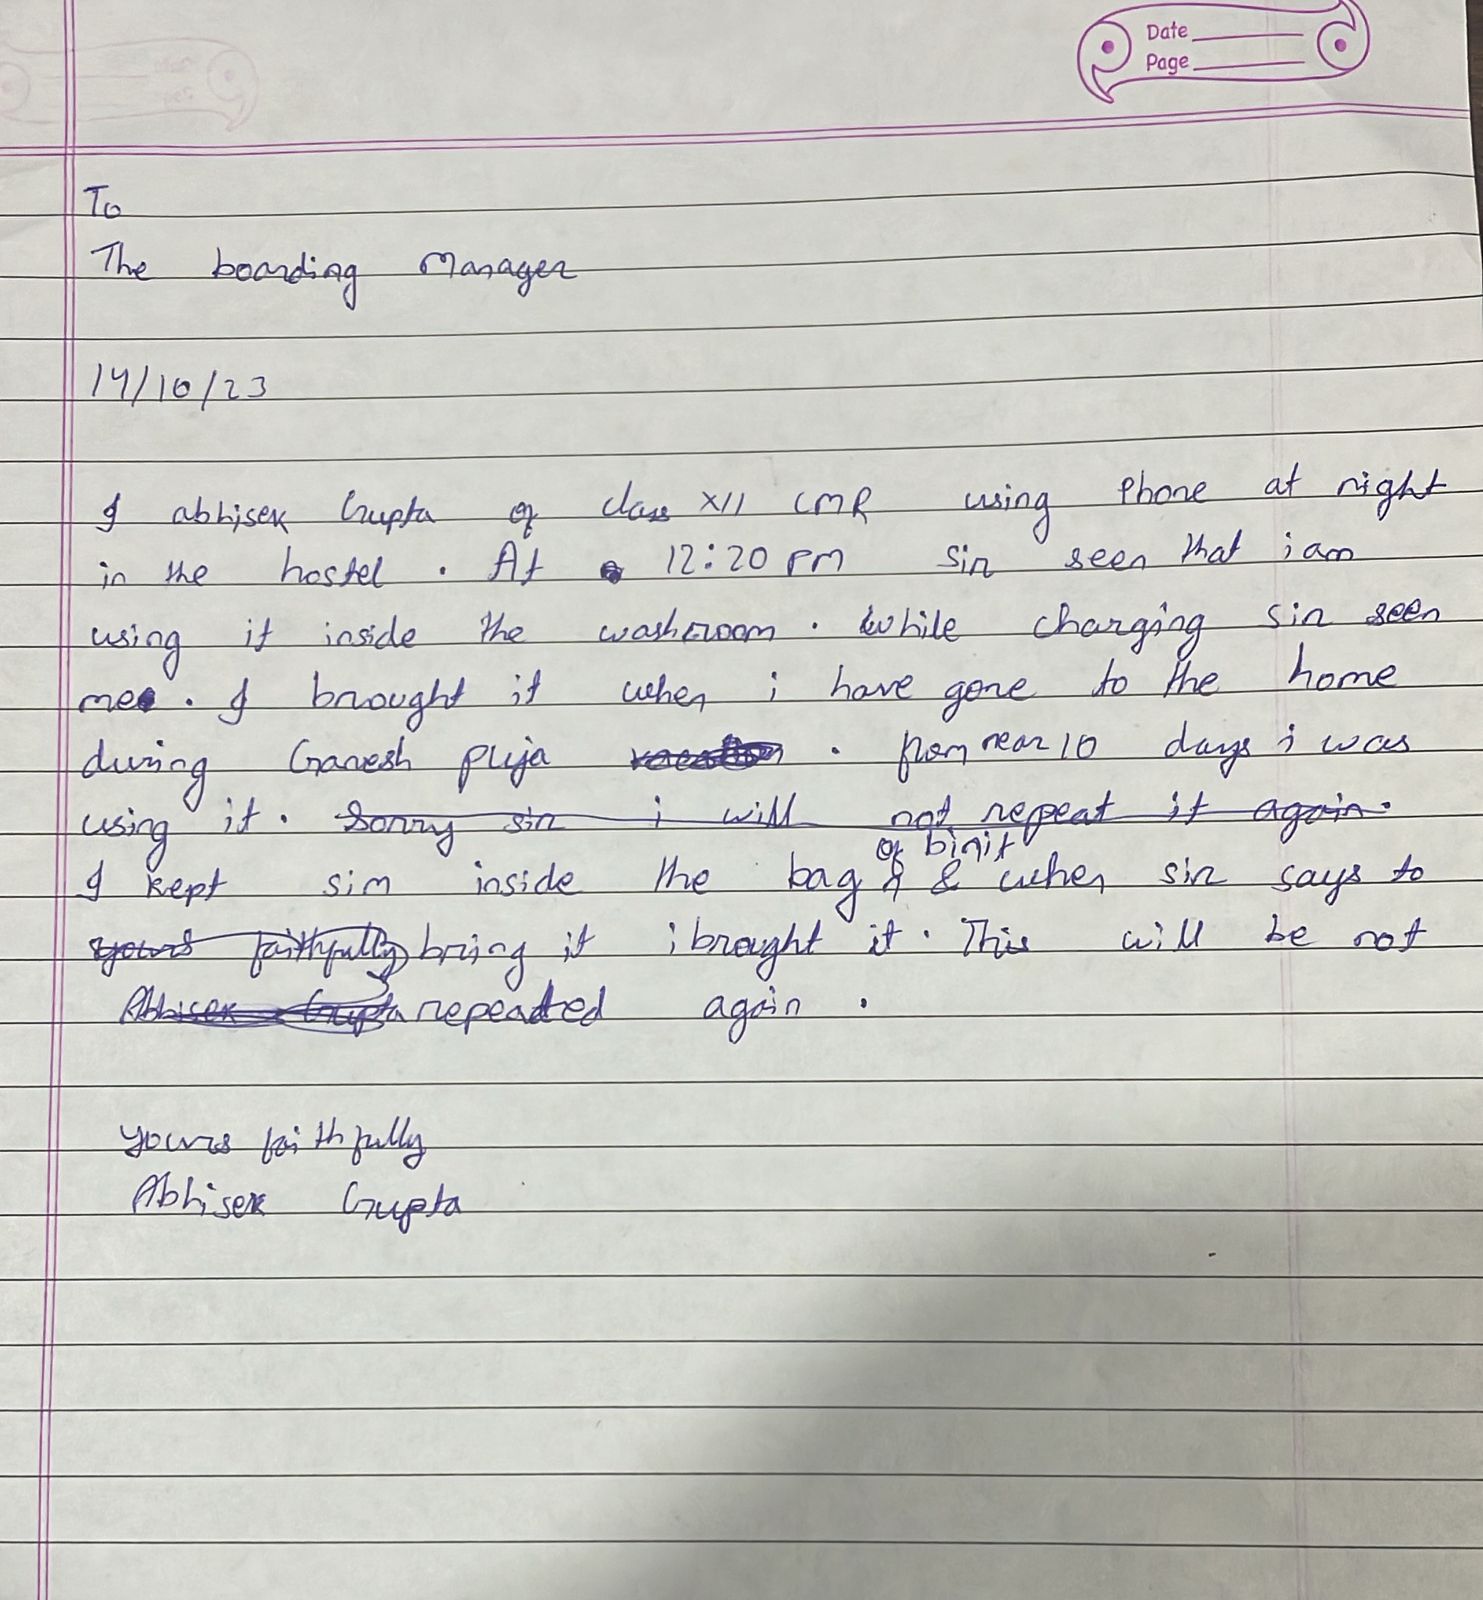 Date
Page
To
The boarding Manager
14/10/23
I abhisek Gupta of class XII CMR using Phone at night
in the hostel. At 12:20 PM sir seen that i am
using it inside the washroom. While charging sir seen
me. I brought it when i have gone to the home
during Ganesh puja. from near 10 days i was
using it. Sorry sir i will not repeat it again.
of binit
I kept sim inside the bag & when sir says to
yours faithfully bring it i brought it. This will be not
Abhisek Gupta repeated again.
yours faithfully
Abhisek Gupta